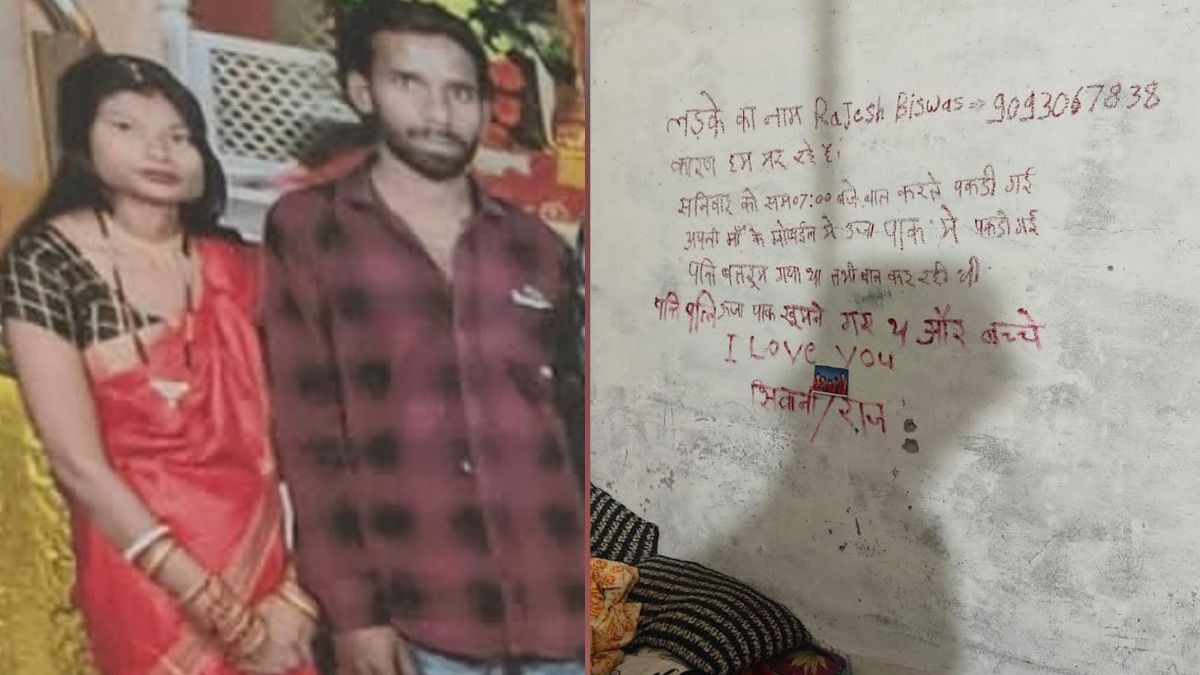 लडके का नाम RaJesh Biswas => 9093067838
कारण हम मर रहे है।
सनिवार को सम07:00 बजे बात करते पकडी गई
अपनी माँ के मोबाईल से ऊजा पाक मे पकडी गई
पत्ति बातरूम गया था तभी बात कर रही थी
पत्ति पत्नि ऊजा पाक घूमने गए थ और बच्चे
I Love You
शिवानी/राज